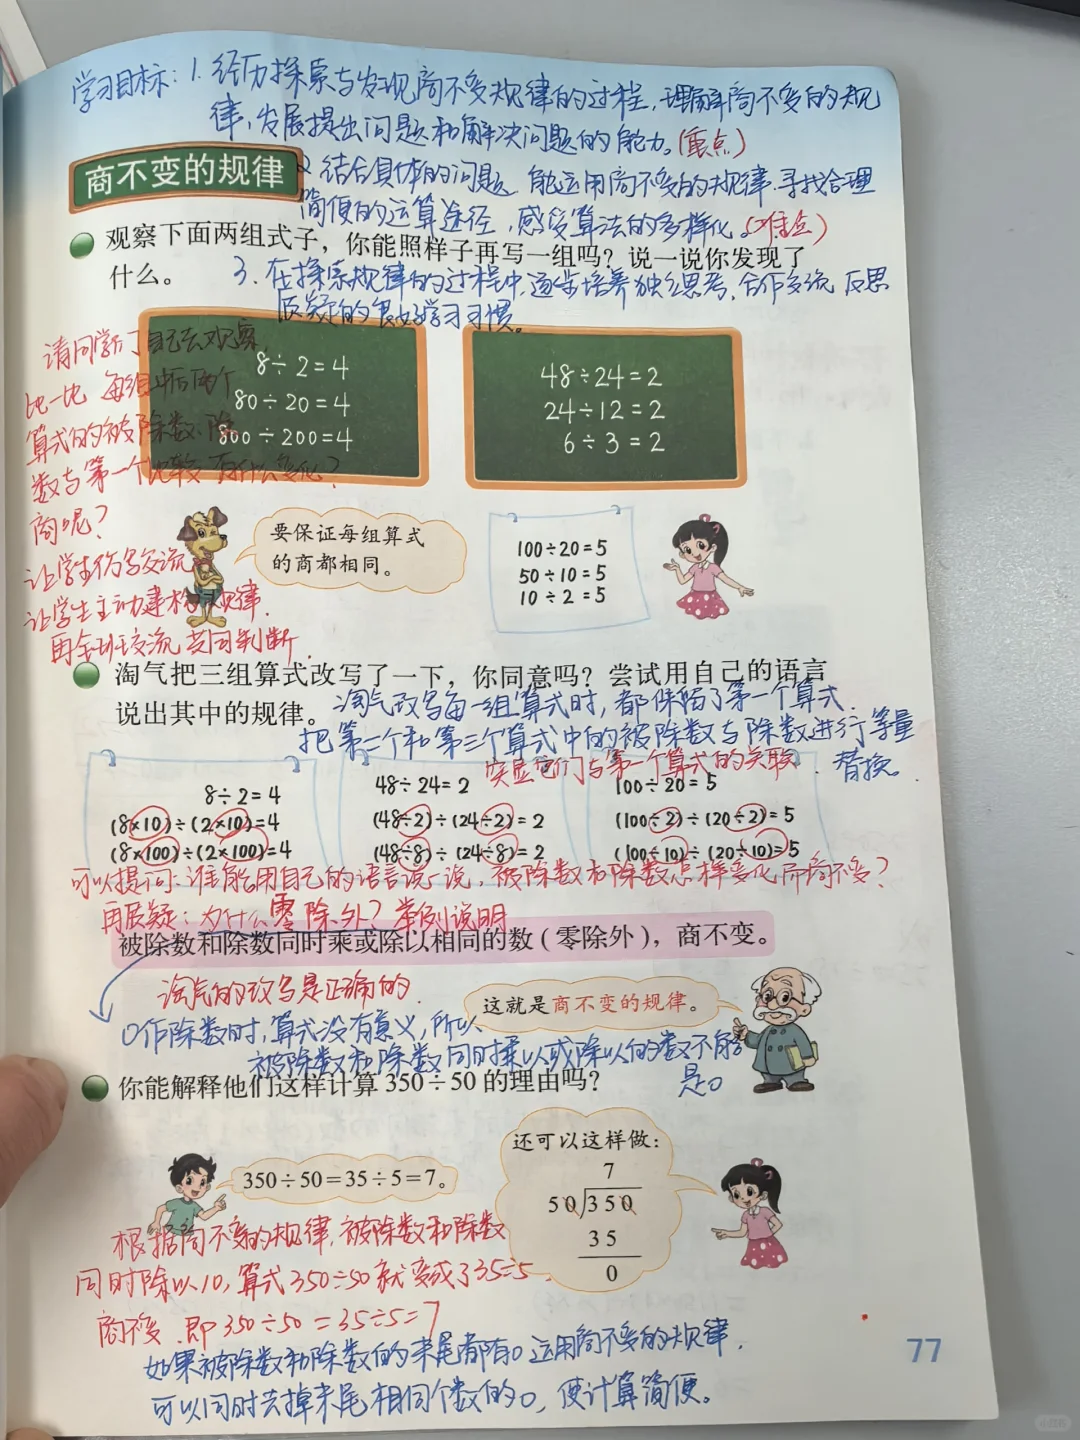 学习目标：1. 经历探索与发现商不变规律的过程，理解商不变的规
律，发展提出问题和解决问题的能力。(重点)
商不变的规律
2 结合具体的问题 能运用商不变的规律 寻找合理
简便的运算途径，感受算法的多样化。(难点)
观察下面两组式子，你能照样子再写一组吗？说一说你发现了
什么。
3. 在探索规律的过程中，逐步培养独立思考，合作交流 反思
质疑的良好学习习惯。
请同学们自己去观察，
比一比 每组中后两个
算式的被除数、除
数与第一个比较 有什么变化？
商呢？
让学生们多交流
让学生主动建构规律.
再全班交流 共同判断.
8÷2=4
80÷20=4
800÷200=4
48÷24=2
24÷12=2
6÷3=2
要保证每组算式
的商都相同。
100÷20=5
50÷10=5
10÷2=5
淘气把三组算式改写了一下，你同意吗？尝试用自己的语言
说出其中的规律。
淘气改写每一组算式时，都保留了第一个算式.
把第二个和第三个算式中的被除数与除数进行等量
替换.
突显它们与第一个算式的关联.
8÷2=4
(8×10)÷(2×10)=4
(8×100)÷(2×100)=4
48÷24=2
(48÷2)÷(24÷2)=2
(48÷8)÷(24÷8)=2
100÷20=5
(100÷2)÷(20÷2)=5
(100÷10)÷(20÷10)=5
可以提问：谁能用自己的语言说一说，被除数和除数怎样变化而商不变？
再质疑：为什么零除外？举例说明
被除数和除数同时乘或除以相同的数(零除外)，商不变。
淘气的改写是正确的.
这就是商不变的规律。
0作除数时，算式没有意义，所以
被除数和除数同时乘以或除以的数不能
是0
你能解释他们这样计算 350÷50 的理由吗？
350÷50=35÷5=7。
还可以这样做：
7
50 350
35
0
根据商不变的规律，被除数和除数
同时除以10，算式350÷50就变成了35÷5.
商不变.即350÷50=35÷5=7
如果被除数和除数的末尾都有0 运用商不变的规律.
可以同时去掉末尾相同个数的0，使计算简便。
77